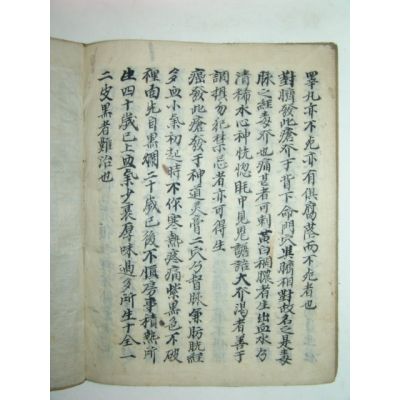 睪凡亦不死亦有俱腐落而不死者也
對臍發此瘡介于背下命門穴與臍相對故名之是毒
脉之經毒介也痛甚者可刺黃白稠膿者生出血水乃
清稀水心神恍惚眊中見鬼譫語大介渴者善于
調損勿犯禁忌者亦可得生
癌發此瘡發于神道灵膏二穴乃督脉兼肪胱經
多血小氣初起時不作寒熱疼痛紫黑色不破
裡面先自黑爛二十歲已後不慎房事積熱所
生四十歲已上血氣少衰厚味過多所生十全一
二皮黑者難治也